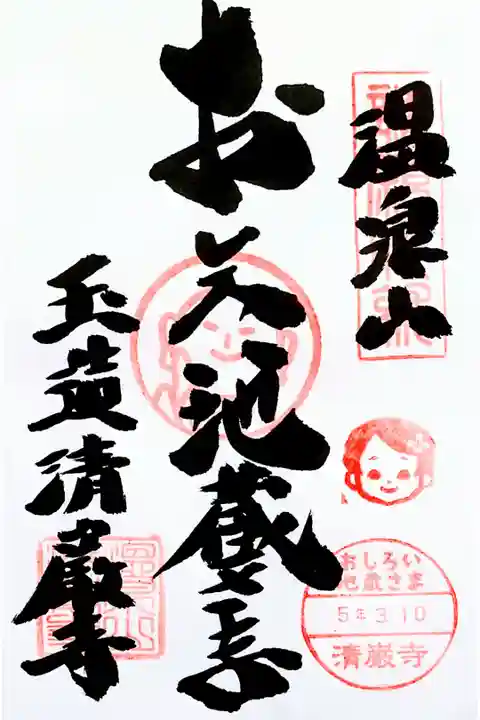 温泉山
お
地蔵
玉造清巌寺
おしろい
地蔵さま
5年3.10
清巌寺